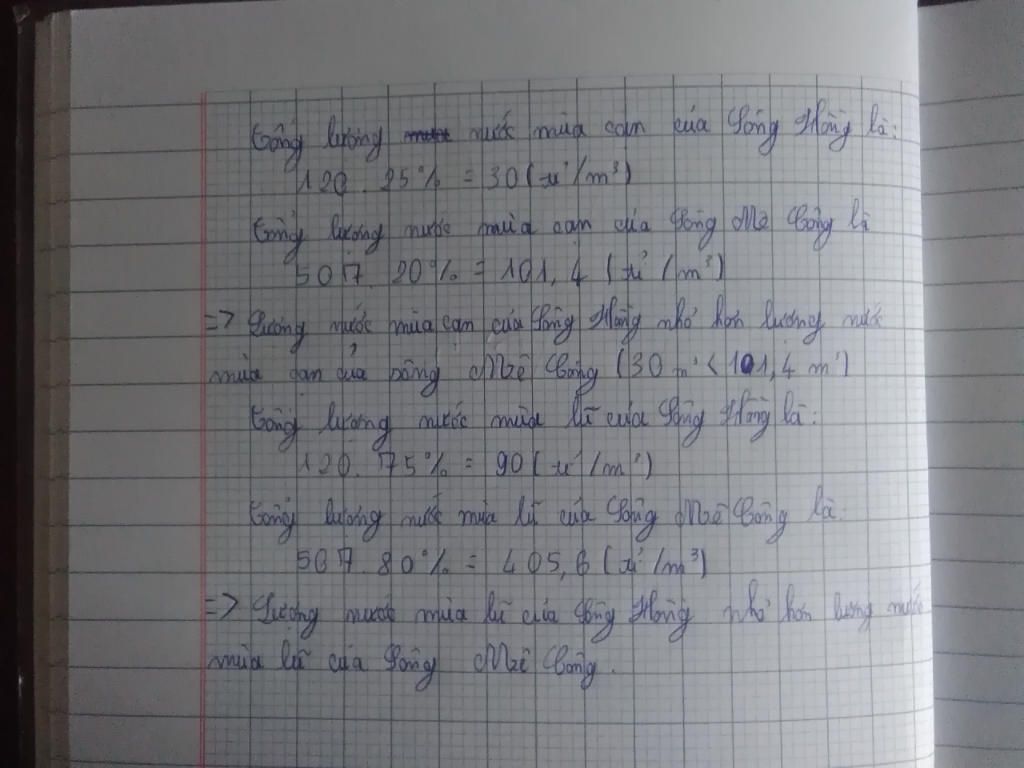 Tổng lượng nước mùa cạn của Sông Hồng là:
120 . 25% = 30 (tỉ/m³)
Tổng lượng nước mùa cạn của Sông Mê Công là
507 . 20% = 101,4 (tỉ/m³)
=> Lượng nước mùa cạn của Sông Hồng nhỏ hơn lượng nước
mùa cạn của sông Mê Công (30 m³ < 101,4 m³)
Tổng lượng nước mùa lũ của Sông Hồng là:
120 . 75% = 90 (tỉ/m³)
Tổng lượng nước mùa lũ của Sông Mê Công là:
507 . 80% = 405,6 (tỉ/m³)
=> Lượng nước mùa lũ của Sông Hồng nhỏ hơn lượng nước
mùa lũ của Sông Mê Công.